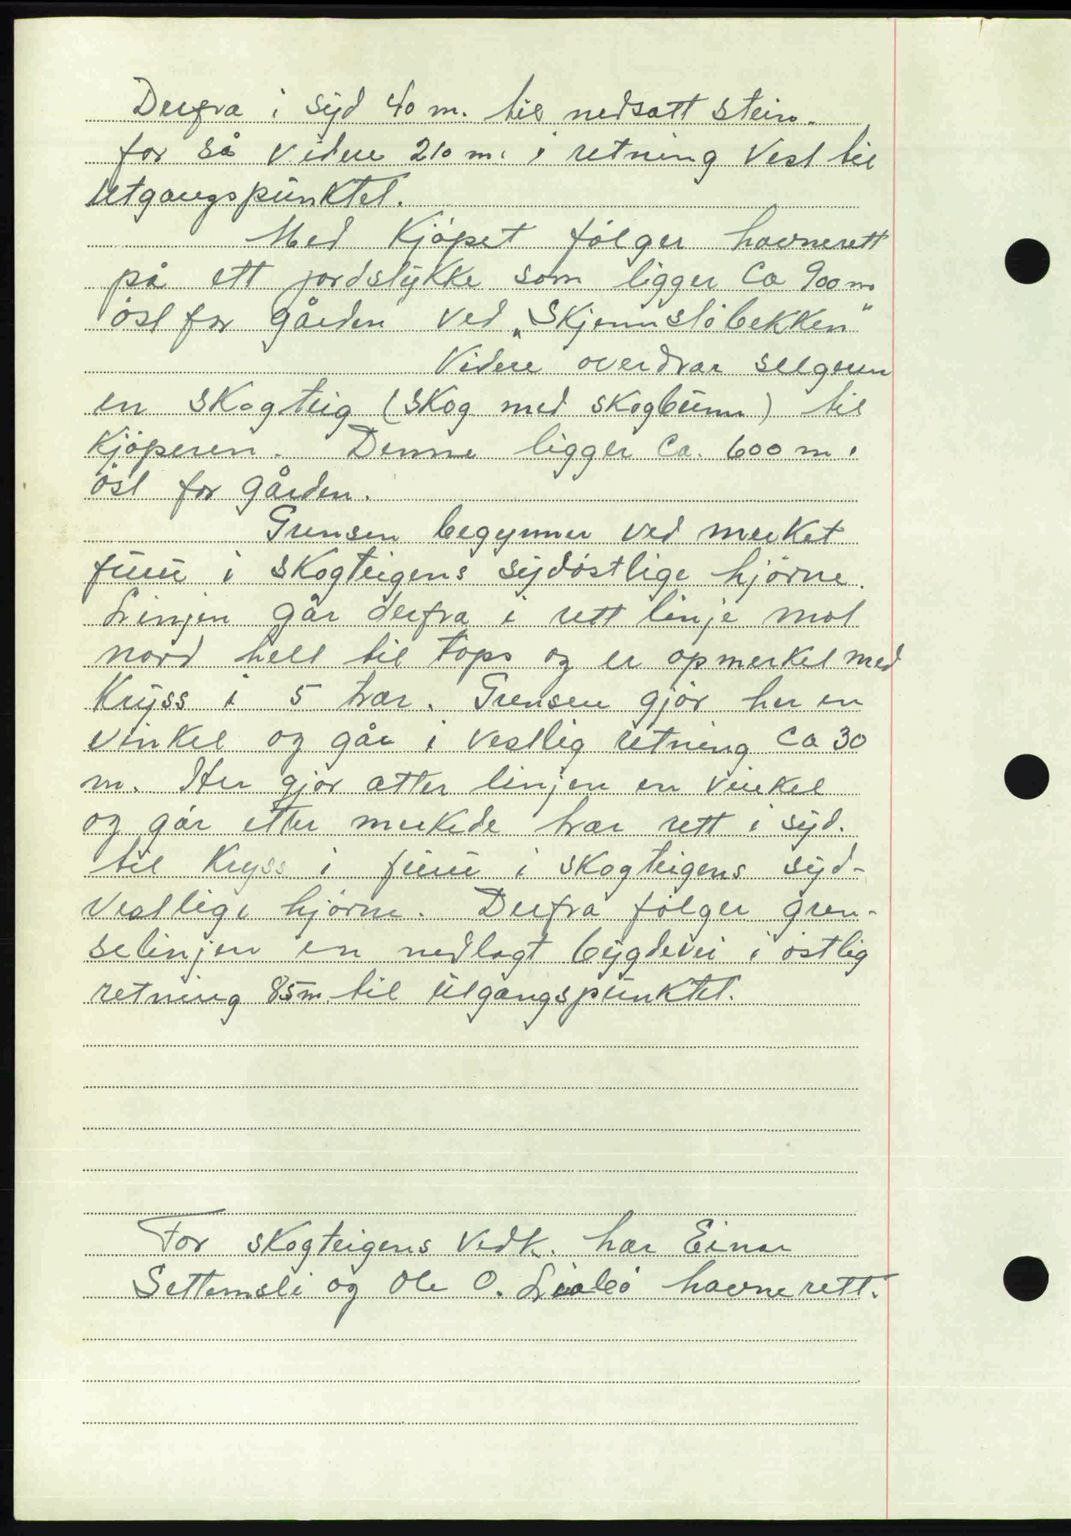 Derfra i syd 40 m. til nedsatt stein.
for så videre 210 m. i retning Vest til
utgangspunktet.
Med Kjöpet følger havnerett
på ett jordstykke som ligger Ca 900 m.
öst for gården ved „Skjennslöbekken"
Videre overdrar selgeren
en skogteig (skog med skogbunn) til
Kjöperen. Denne ligger Ca. 600 m.
öst for gården.
Grensen begynner ved merket
furu i skogteigens sydöstlige hjörne.
Linjen går derfra i rett linje mot
nord helt til tops og er opmerket med
Kryss i 5 trær. Grensen gjör her en
vinkel og går i vestlig retning Ca 30
m. Her gjör atter linjen en vinkel
og går etter merkede trær rett i syd.
til Kryss i furu i skogteigens syd-
vestlige hjörne. Derfra følger gren-
selinjen en nedlagt bygdevei i östlig
retning 85 m til utgangspunktet.
For skogteigens vedk. har Einar
Settemsli og Ole O. havnerett.